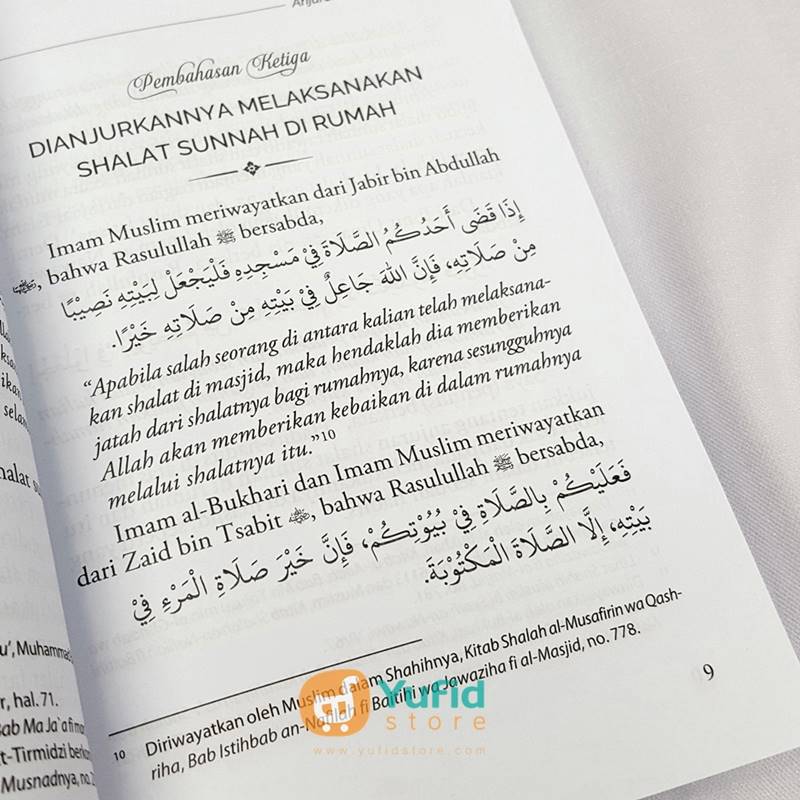 Anjura
Pembahasan Ketiga
DIANJURKANNYA MELAKSANAKAN
SHALAT SUNNAH DI RUMAH
Imam Muslim meriwayatkan dari Jabir bin Abdullah
, bahwa Rasulullah ﷺ bersabda,
إِذَا قَضَى أَحَدُكُمُ الصَّلَاةَ فِيْ مَسْجِدِهِ فَلْيَجْعَلْ لِبَيْتِهِ نَصِيْبًا
مِنْ صَلَاتِهِ، فَإِنَّ اللهَ جَاعِلٌ فِيْ بَيْتِهِ مِنْ صَلَاتِهِ خَيْرًا.
“Apabila salah seorang di antara kalian telah melaksana-
kan shalat di masjid, maka hendaklah dia memberikan
jatah dari shalatnya bagi rumahnya, karena sesungguhnya
Allah akan memberikan kebaikan di dalam rumahnya
melalui shalatnya itu.”10
Imam al-Bukhari dan Imam Muslim meriwayatkan
dari Zaid bin Tsabit , bahwa Rasulullah ﷺ bersabda,
فَعَلَيْكُمْ بِالصَّلَاةِ فِيْ بُيُوْتِكُمْ، فَإِنَّ خَيْرَ صَلَاةِ الْمَرْءِ فِيْ
بَيْتِهِ، إِلَّا الصَّلَاةَ الْمَكْتُوْبَةَ.
10 Diriwayatkan oleh Muslim dalam Shahihnya, Kitab Shalah al-Musafirin wa Qash-
riha, Bab Istihbab an-Nafilah fi Baitihi wa Jawaziha fi al-Masjid, no. 778.
9
ikan
selan
halat su
u’, Muhammad
r, hal. 71.
Bab Ma Ja`a fi ma
t-Tirmidzi berkom
Musnadnya, no. 2
Yufid
store
www.yufidstore.com